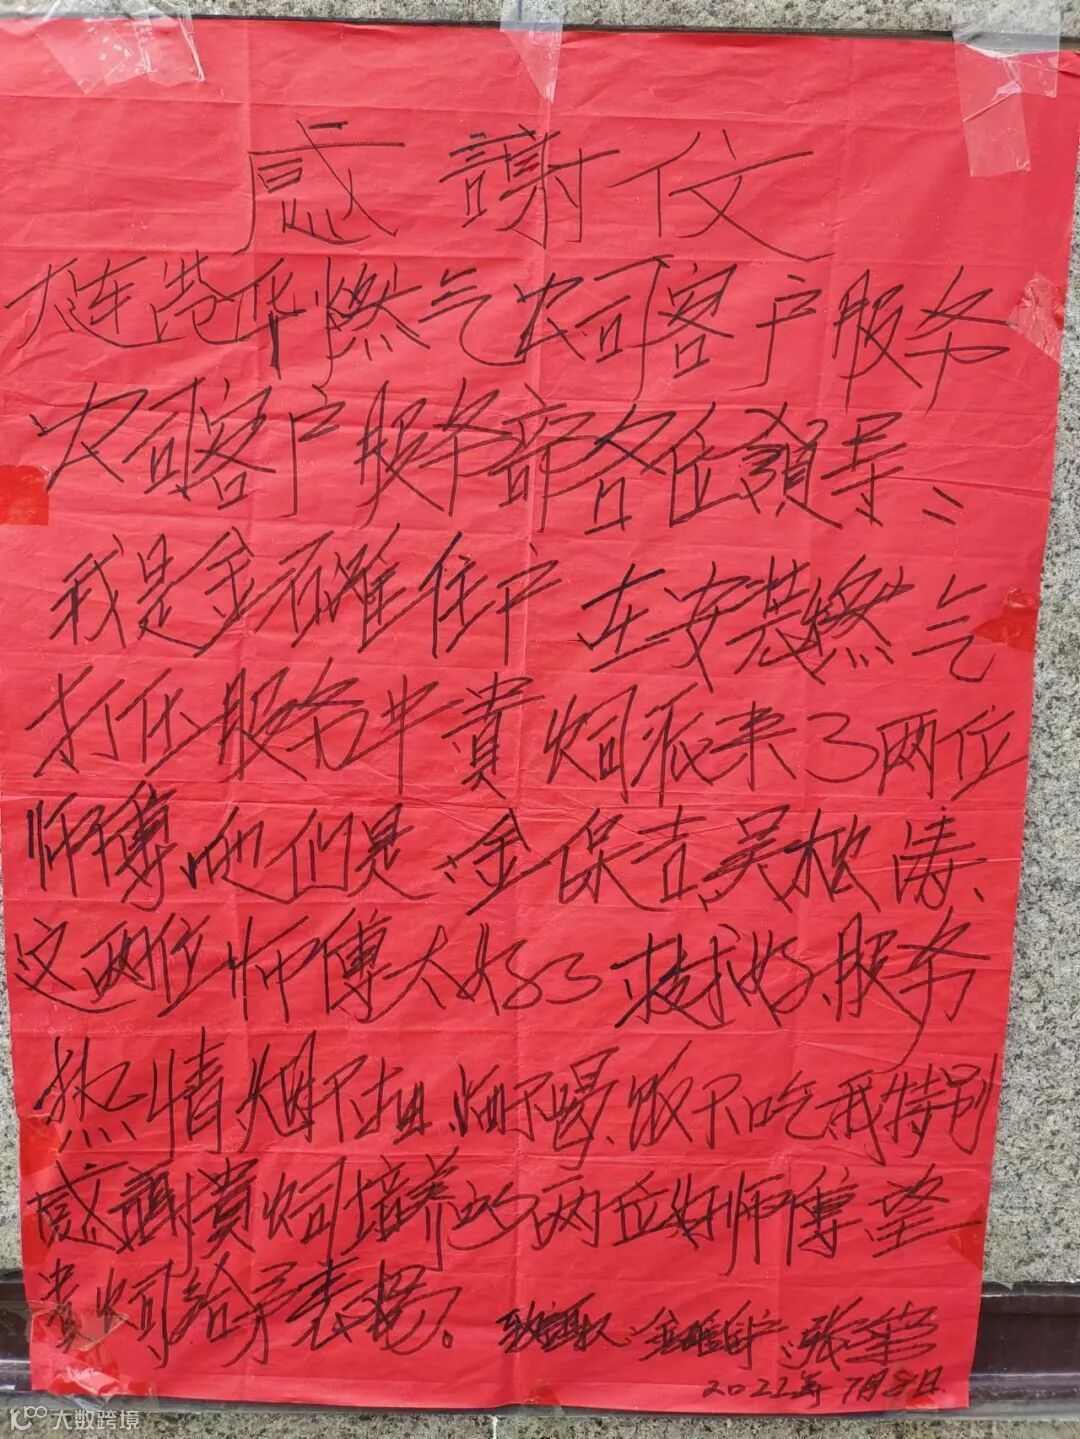 感謝仪
大连港华燃气公司客户服务
公司客户服务部各位領导：
我是金石滩住户在安装燃气
打压服务中貴公司派来了两位
师傅，他们是：金保吉、吴松涛、
这两位师傅太好了技术好、服务
热情烟不抽、酒不喝、饭不吃、我特别
感謝貴公司培养的两位好师傅，望
貴公司给予表揚。
金石滩住户：张
2022年7月8日.
大数跨境